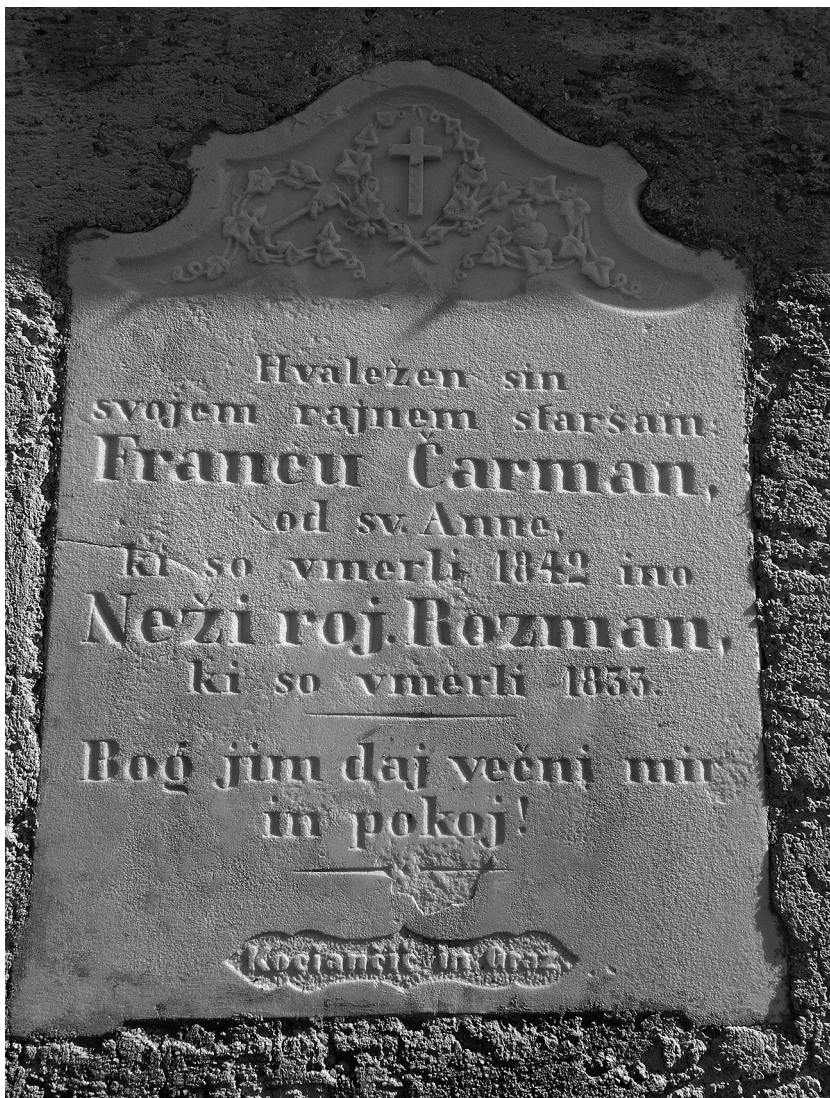 Hvaležen sin
svojem rajnem staršam:
Francu Čarman,
od sv. Anne,
ki so vmerli 1842 ino
Neži roj. Rozman,
ki so vmerli 1833.
Bog jim daj večni mir
in pokoj!
in Graz.